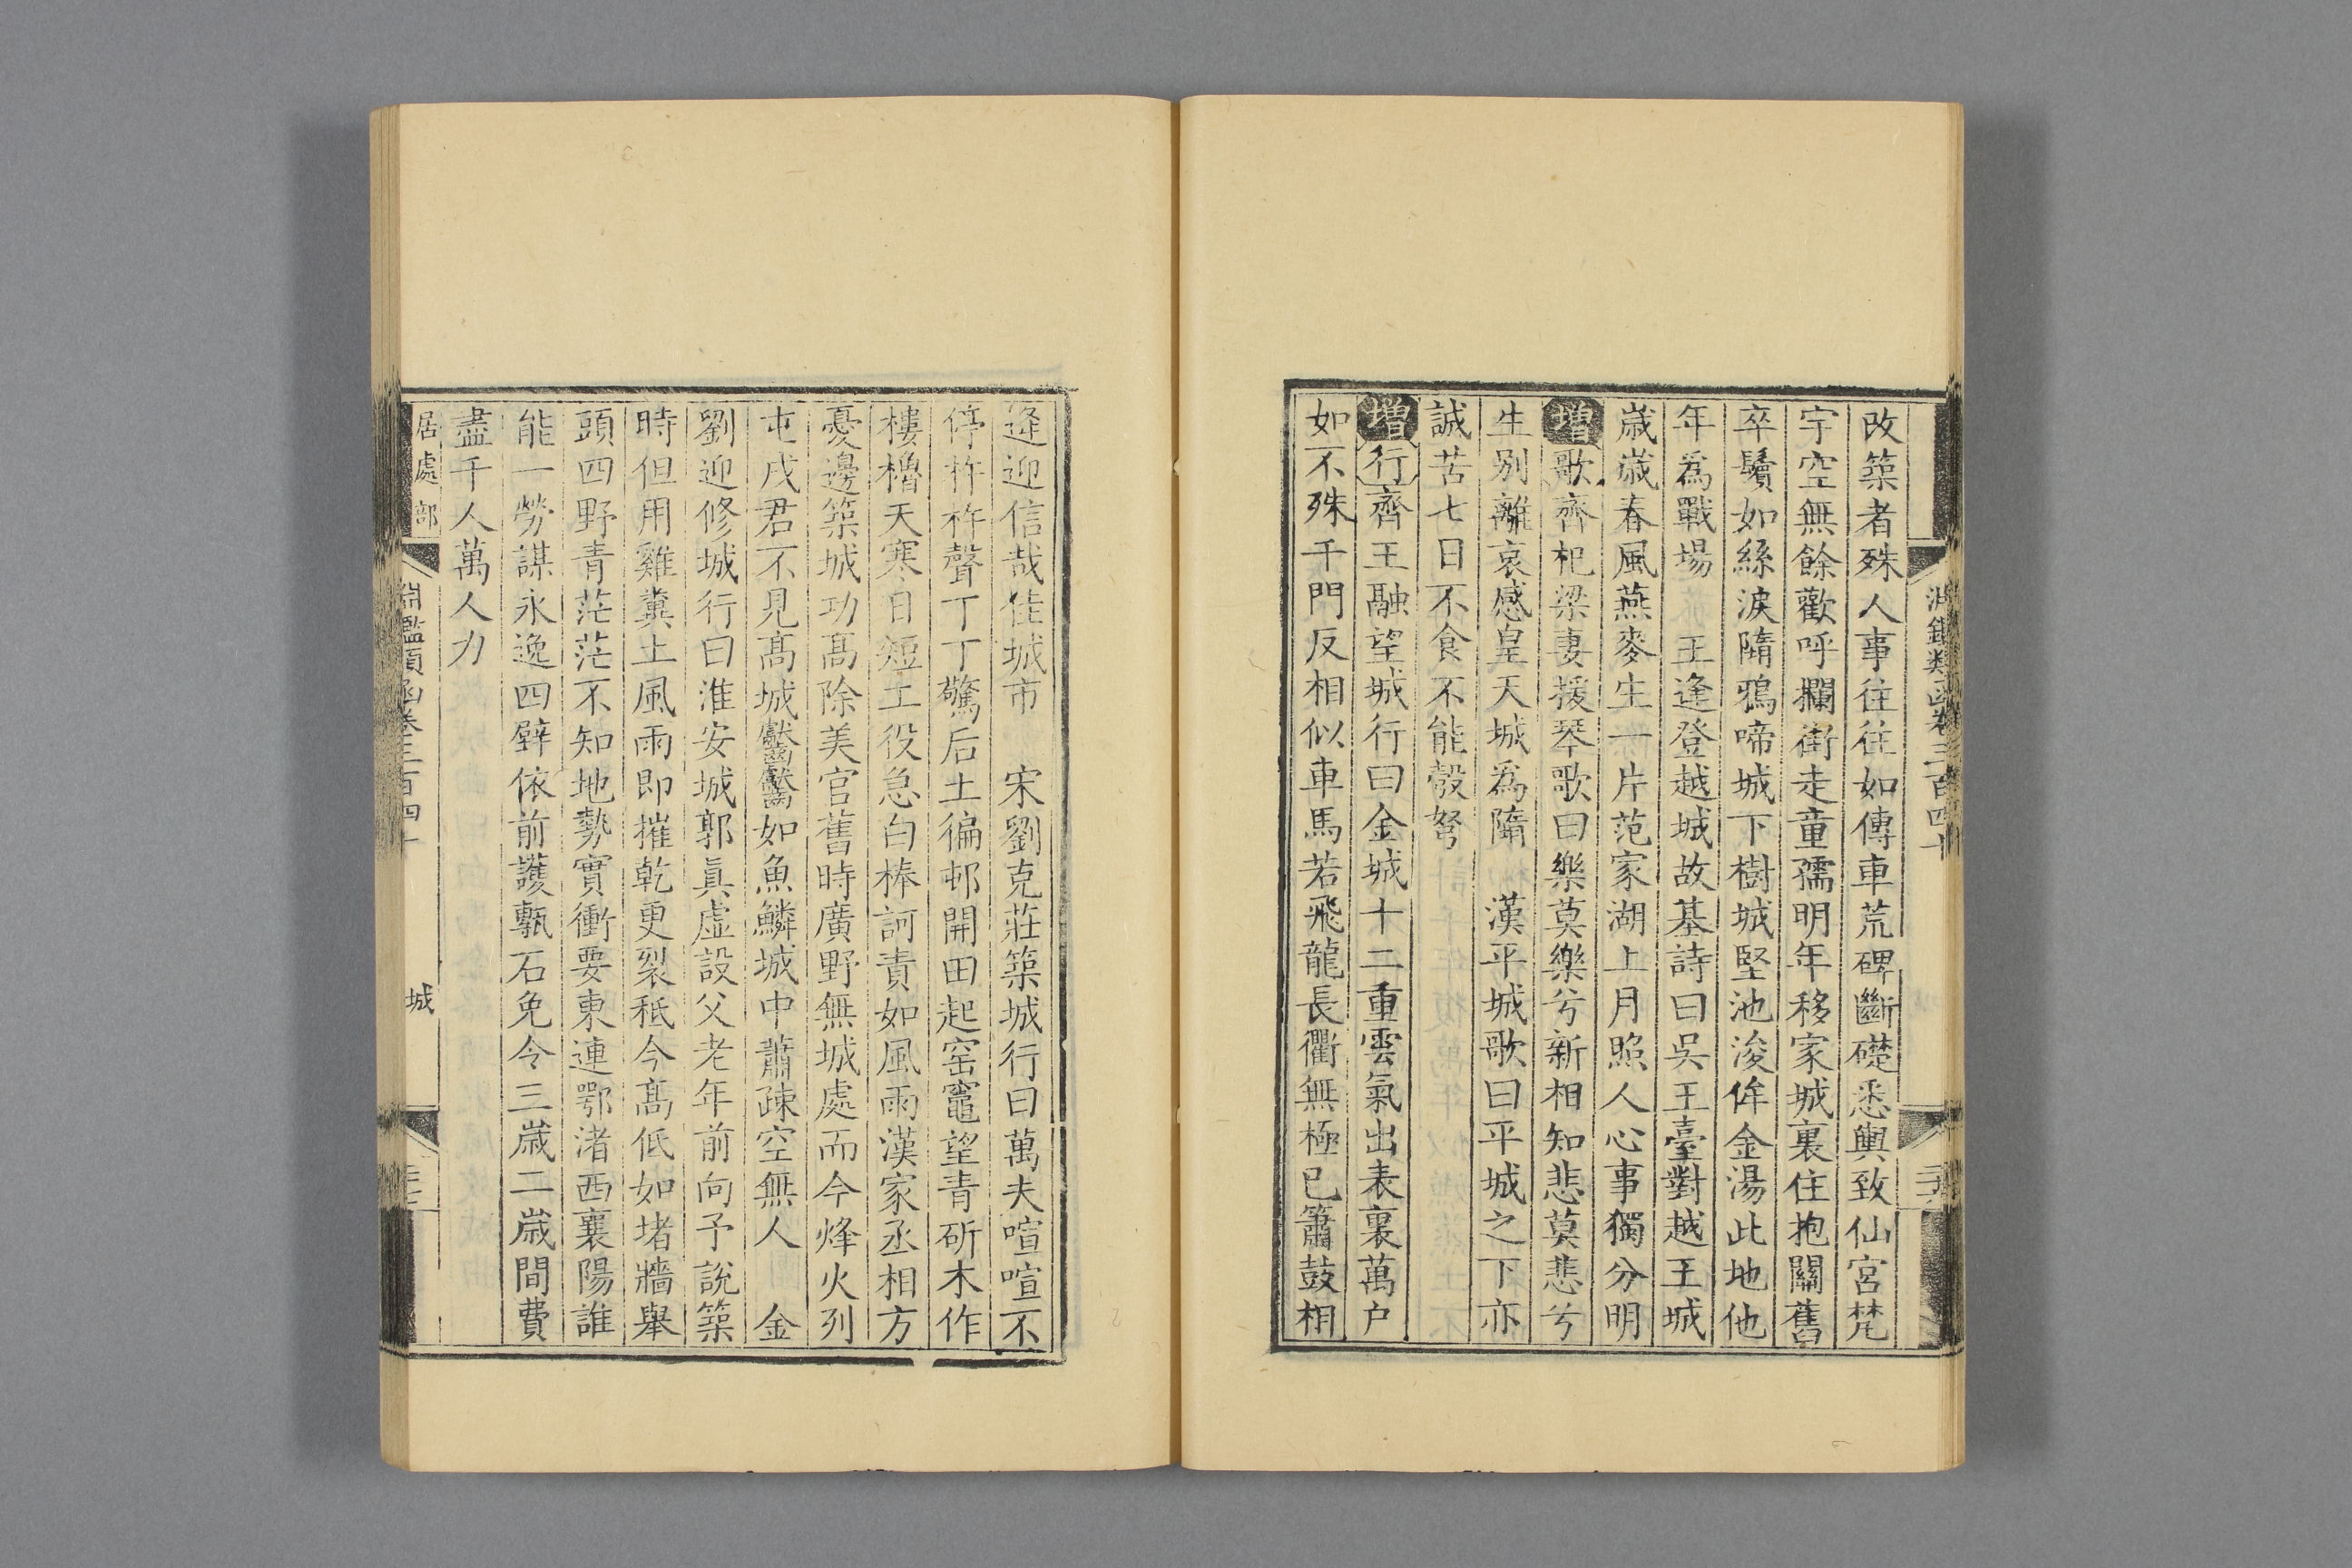 改築者殊人事往往如傳車荒碑斷礎悉輿致仙宮梵
宇空無餘歡呼攔街走童孺明年移家城裏住抱關舊
卒鬢如絲淚隨鴉啼城下樹城堅池浚侔金湯此地他
年爲戰場 王逢登越城故基詩曰吳王臺對越王城
歲歲春風燕麥生一片范家湖上月照人心事獨分明
增歌齊杞梁妻援琴歌曰樂莫樂兮新相知悲莫悲兮
生别離哀感皇天城爲隳 漢平城歌曰平城之下亦
誠苦七日不食不能彀弩
增行齊王融望城行曰金城十二重雲氣出表裏萬戶
如不殊千門反相似車馬若飛龍長衢無極已簫鼓相
逢迎信哉佳城市 宋劉克莊築城行曰萬夫喧喧不
停杵杵聲丁丁驚后土徧邨開田起窑竈望青斫木作
樓櫓天寒日短工役急白棒訶責如風雨漢家丞相方
憂邊築城功高除美官舊時廣野無城處而今烽火列
屯戍君不見高城齾齾如魚鱗城中蕭疎空無人 金
劉迎修城行曰淮安城郭眞虛設父老年前向予說築
時但用雞糞土風雨即摧乾更裂秪今高低如堵牆舉
頭四野青茫茫不知地勢實衝要東連鄂渚西襄陽誰
能一勞謀永逸四壁依前護甎石免令三歲二歲間費
盡千人萬人力
居處部
淵鑑類函卷三百四十
城